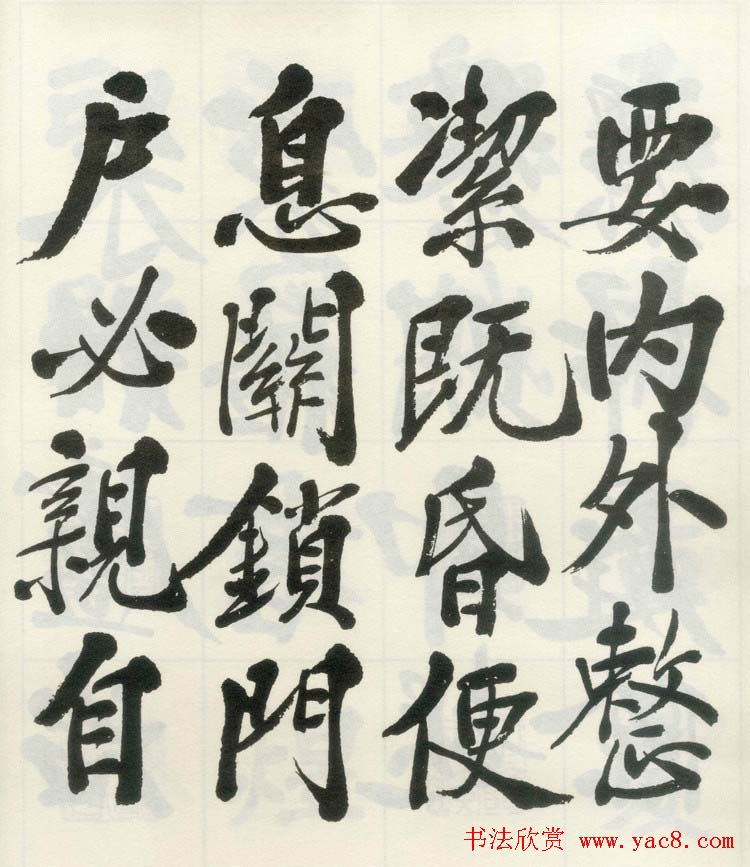 要内外整
潔既昏便
息關鎖門
户必親自
书法欣赏 www.yac8.com